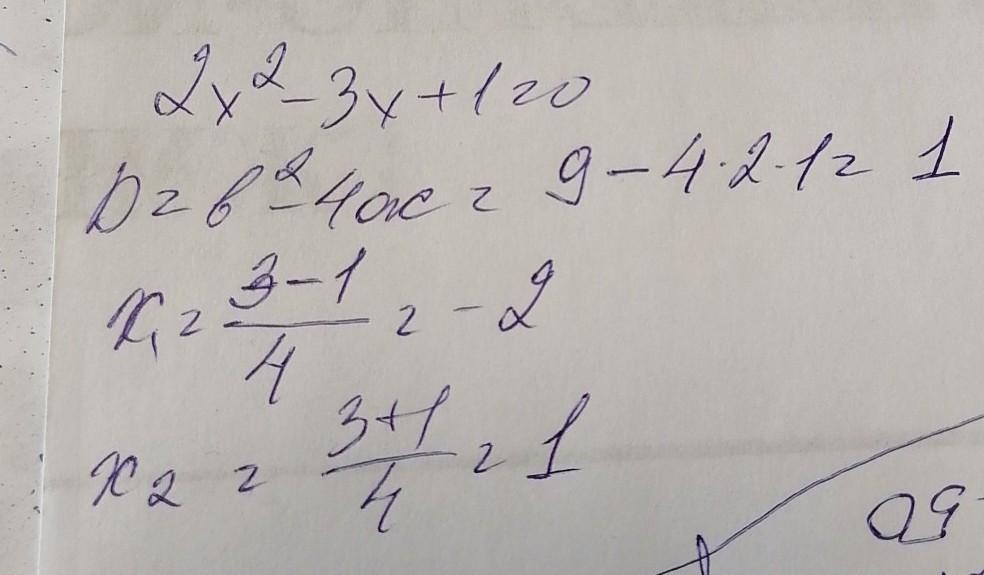 2x² - 3x + 1 = 0
D = b² - 4ac = 9 - 4·2·1 = 1
x₁ = (3-1)/4 = -2
x₂ = (3+1)/4 = 1